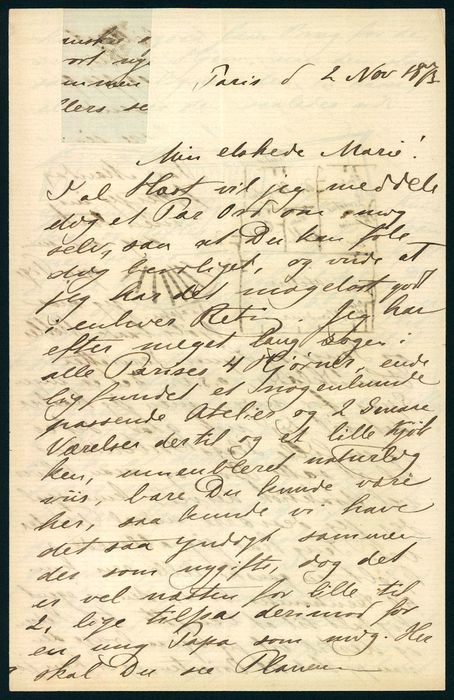 ønske
ort
mmen
llers se
Paris d 2 Nov 187
Min elskede Marie!
I al Hast vil jeg meddele
dog et Par Ord om mig
selv, saa at Du kan føle
dig beroliget, og vide at
jeg har det mageløst god
i enhver Retn. Jeg har
efter meget lang Søgen i
alle Parises 4 Hjørner, ende
lig fundet et nogenlunde
passende Atelier og 2 Smaae
Værelser dertil og et lille Kjøk
ken, ummeubleret naturlig
viis, bare Du kunde være
her, saa kunde vi have
det saa yndigt sammen
der som nygifte, dog det
er vel næsten for lille til
2, lige tilpas derimod for
en ung Papa som mig. Her
skal Du see Planen